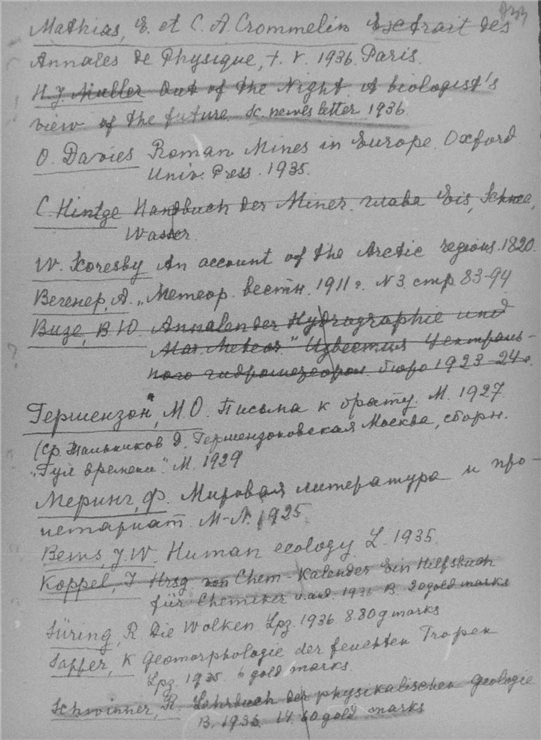 Mathias, E. et C. A. Crommelin Extrait des
Annales de Physique, t. V. 1936. Paris.
H. J. Muller Out of the Night A biologist's
view of the future Sc. newsletter 1936.
O. Davies Roman Mines in Europe. Oxford
Univ. Press. 1935.
C. Hintze Handbuch der Miner. глава Eis, Schnee,
Wasser.
W. Scoresby An account of the Arctic regions. 1820.
Вегенер, А. „Метеор. вестн. 1911 г. N 3 стр 83-94
Визе, В Ю Annalen der Hydrographie und
Mar. Meteor" Известия Централь-
ного гидрометеорол. бюро 1923-24г.
Гершензон, М. О. Письма к брату. М. 1927
(ср Д. Гершензоновская Москва, сборн.
„Гул времени". М. 1929
Меринг, Ф. Мировая литература и про-
летариат М-Л. 1925.
Bews, J. W. Human ecology. L. 1935.
Koppel, J Hrsg von Chem-Kalender Ein Hilfsbuch
für Chemiker u. and. 1936 B. 20 gold marks
Süring, R Die Wolken Lpz. 1936. 8.80 g marks
Sapper, K Geomorphologie der feuchten Tropen
Lpz. 1935. 6 gold marks.
Schwinner, R. Lehrbuch der physikalischen Geologie
B. 1936. 14.60 gold marks